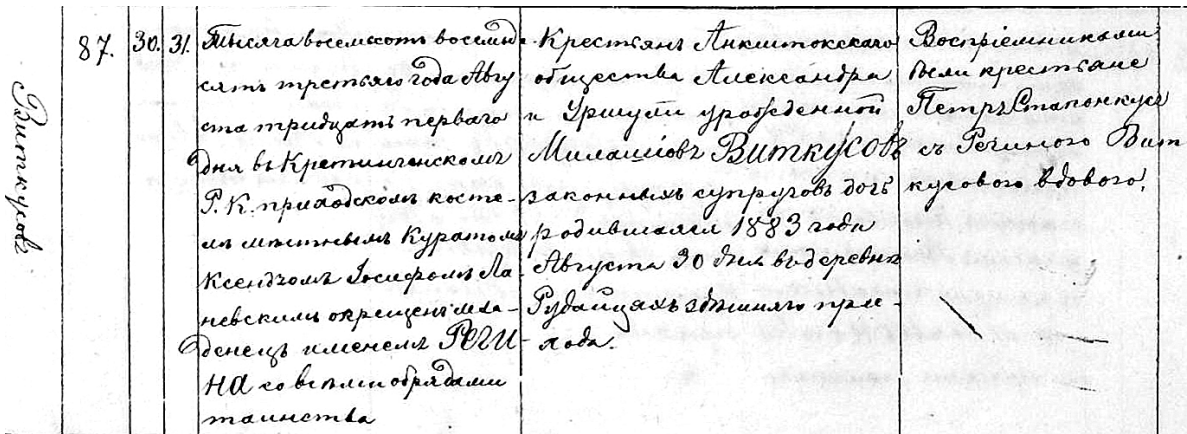 Виткусовъ
87.
30.
31.
Тысяча восемьсотъ восемьде-
сятъ третьяго года Авгу
ста тридцать перваго
дня въ Кретингенскомъ
Р. К. приходскомъ косте-
лѣ мѣстнымъ Куратомъ
Ксендзомъ Іосифомъ Ла-
невскимъ окрещенъ мла-
денецъ именемъ РЕГИ-
НА со всѣми обрядами
таинства
Крестьянъ Анкштокскаго
общества Александра
и Уршули урожденной
Милашювъ Виткусовъ
законныхъ супруговъ дочь
родившаяся 1883 года
Августа 30 дня въ деревнѣ
Рудайцяхъ здѣшняго при-
хода.
Воспріемниками
были крестьяне
Петръ Стапонкусъ
съ Региною Вит
кусовою вдовою.